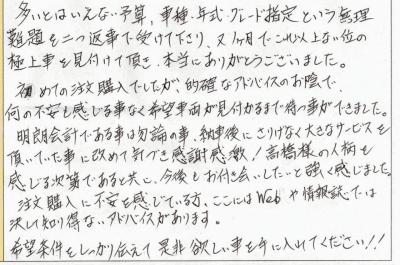 多いとはいえない予算、車種・年式・グレード指定という無理
難題を二つ返事で受けて下さり、又1ヶ月でこれ以上ない位の
極上車を見付けて頂き、本当にありがとうございました。
初めての注文購入でしたが、的確なアドバイスのお陰で、
何の不安も感じる事なく希望車両が見付かるまで待つ事ができました。
明朗会計である事は勿論の事、納車後にさりげなく大きなサービスを
頂いていた事に改めて気づき感謝感激!高橋様の人柄を
感じる次第であると共に、今後もお付き会いしたいと強く感じました。
注文購入に不安を感じている方、ここにはWebや情報誌では
決して知り得ないアドバイスがあります。
希望条件をしっかり伝えて是非欲しい車を手に入れてください!!!